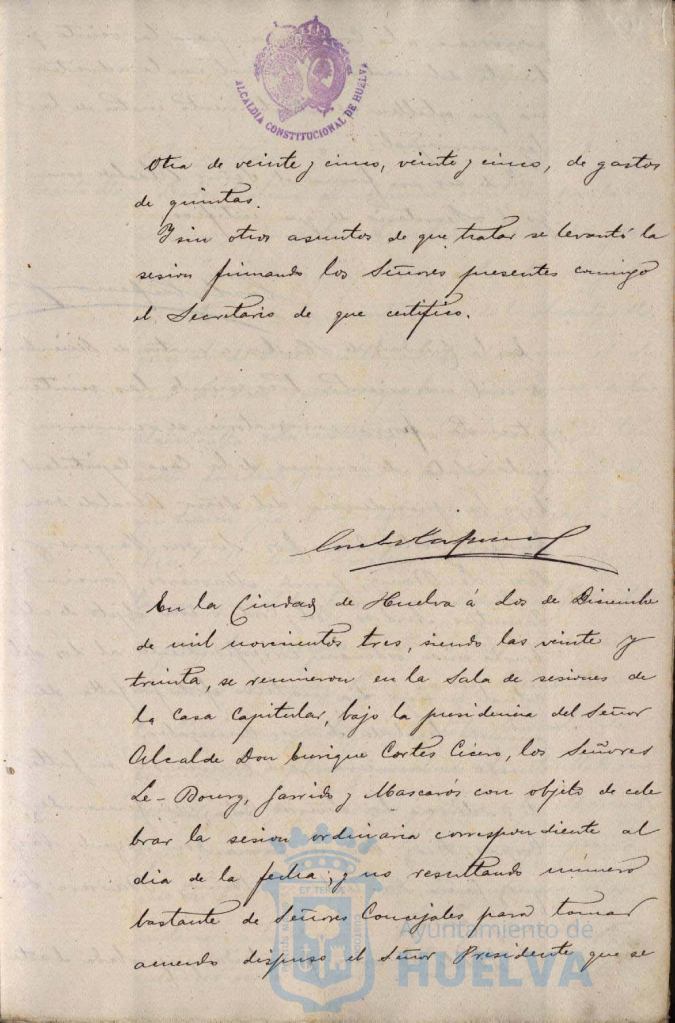 ALCALDIA CONSTITUCIONAL DE HUELVA
Otra de veinte y cinco, veinte y cinco, de gastos
de quintas.
Y sin otros asuntos de que tratar se levantó la
sesion firmando los Señores presentes conmigo
el Secretario de que certifico.
En la Ciudad de Huelva á dos de Diciembre
de mil novecientos tres, siendo las veinte y
treinta, se reunieron en la Sala de sesiones de
la Casa Capitular, bajo la presidencia del Señor
Alcalde Don Enrique Cortes Cicero, los Señores
Le-Bourg, Garrido y Mascarós con objeto de cele
brar la sesion ordinaria correspondiente al
dia de la fecha; y no resultando número
bastante de Señores Concejales para tomar
acuerdo dispuso el Señor Presidente que se
Ayuntamiento de
HUELVA